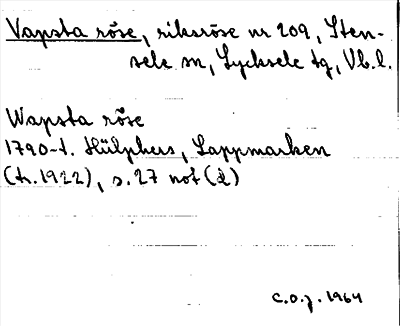 Vapsta röse, riksröse nr 209, Sten-
sele sn, Lycksele tg, Vb.l.
Wapsta röse
1790-t. Hülphers, Lappmarken
(tr. 1922), s. 27 not (d)
C.O.J. 1964